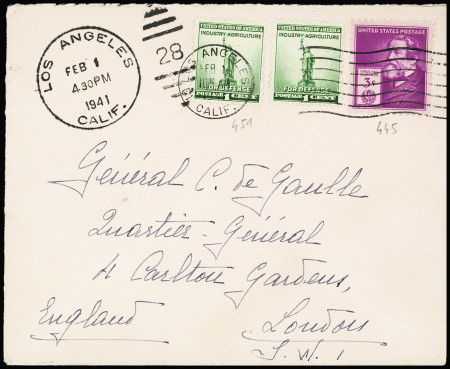 LOS ANGELES
FEB 1
4.30PM
1941
CALIF.
28
LOS ANGELES
FEB 1
CALIF.
UNITED STATES POSTAGE
INDUSTRY AGRICULTURE
FOR DEFENSE
POSTAGE 1 CENT
UNITED STATES POSTAGE
INDUSTRY AGRICULTURE
FOR DEFENSE
POSTAGE 1 CENT
UNITED STATES POSTAGE
3¢
451
445
Général C. de Gaulle
Quartier-Général
4 Carlton Gardens,
England London
S. W. 1